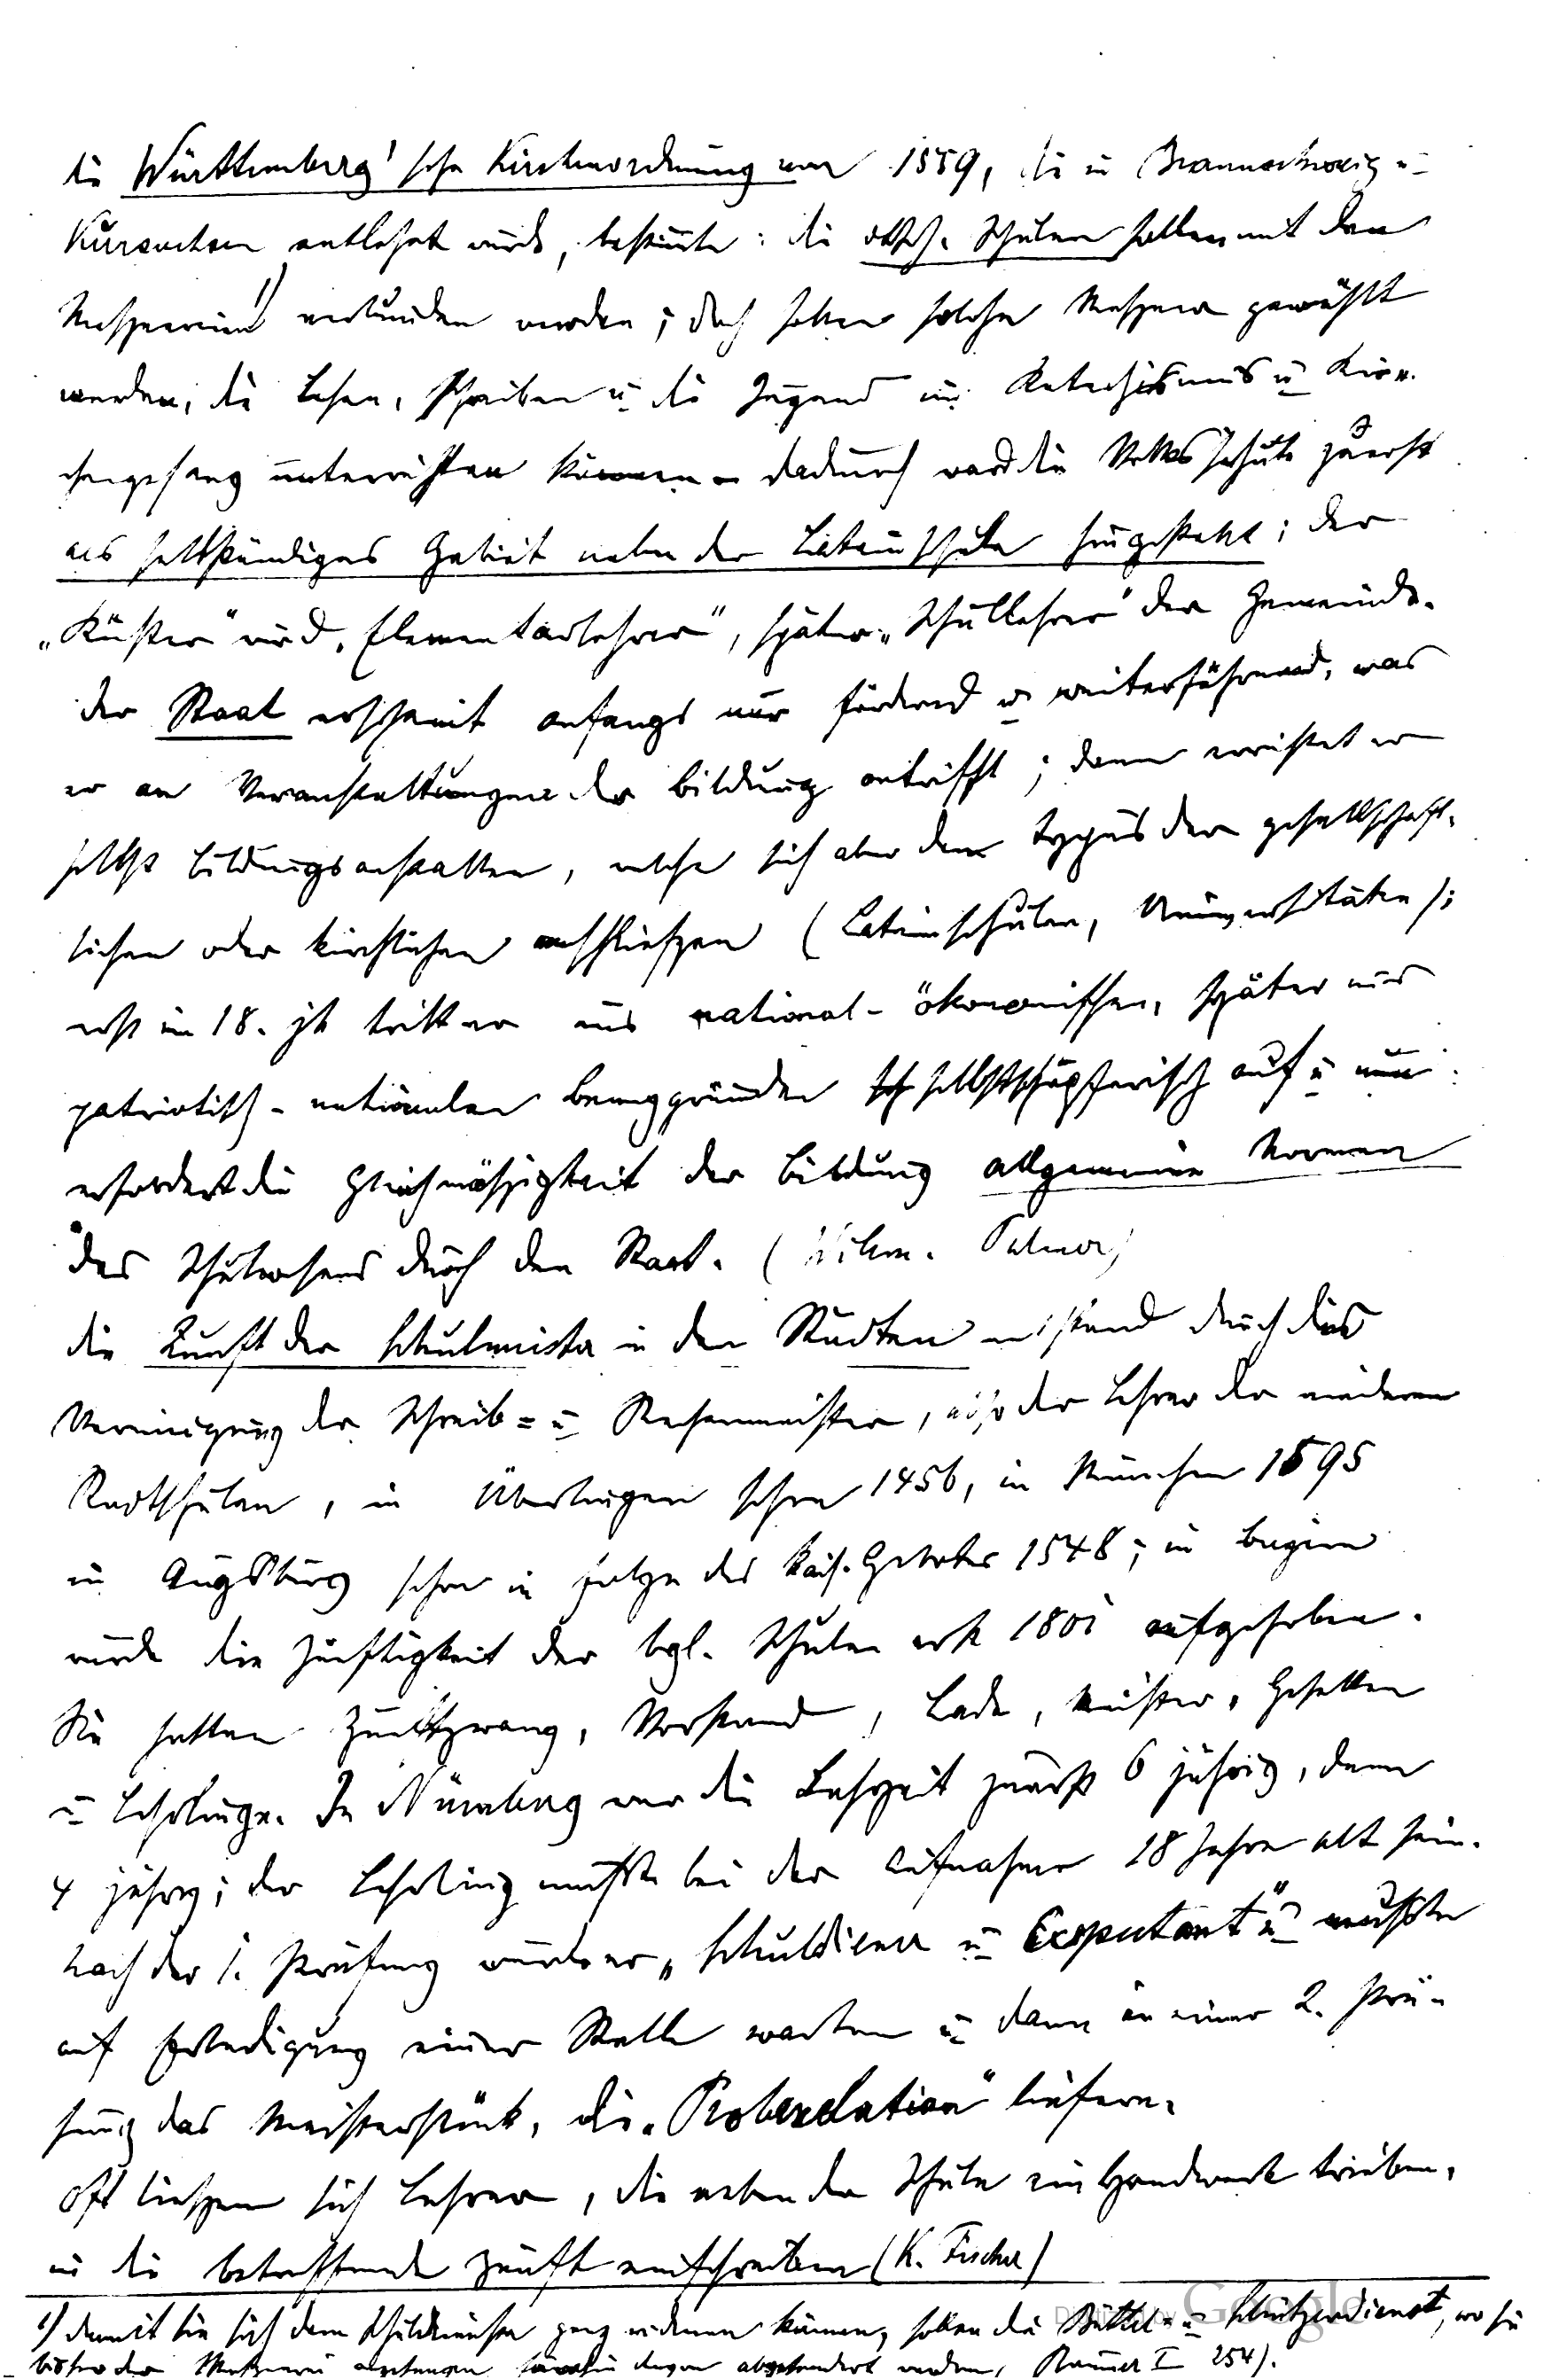 die Württemberg'sche Kirchenordnung von 1559, die in Braunschweig u.
Kursachsen entlehnt wurde, bestimmte: die dtsch. Schulen sollen mit den
Mesnereien 1) verbunden werden; doch sollen solche Messner gewählt
werden, die Lesen, Schreiben u. die Jugend im Katechismus u. Kir-
chengesang unterrichten können. - dadurch ward die Volksschule zuerst
als selbständiges Gebiet neben der Lateinschule hingestellt; der
„Küster" wird „Elementarlehrer", später „Schullehrer" der Gemeinde.
der Staat erscheint anfangs nur fördernd u. weiterführend, was
er an Veranstaltungen der Bildung antrifft; dann errichtet er
selbst Bildungsanstalten, welche sich aber dem Typus der gesellschaft-
lichen oder kirchlichen anschliessen (Lateinschulen, Universitäten);
erst im 18. Jh tritt er aus national-ökonomischen, später aus
patriotisch-nationalen Beweggründen selbstschöpferisch auf u. nun
erfordert die Gleichmässigkeit der Bildung allgemeine Normen
des Schulwesens durch den Staat. (
die Zunft der Schulmeister in den Städten entstand durch die
Vereinigung der Schreib= u. Rechenmeister, also der Lehrer der niederen
Stadtschulen, in Überlingen schon 1456, in München 1595
in Augsburg schon in Folge des kais. Gebotes 1548; in Bayern
wurde die Zünftigkeit der bgl. Schulen erst 1801 aufgehoben.
Sie hatten Zunftzwang, Vorstand, Lade, Meister, Gesellen
u. Lehrlinge. In Nürnberg war die Lehrzeit zuerst 6 jährig, dann
4 jährig; der Lehrling musste bei der Aufnahme 18 Jahre alt sein.
Nach der 1. Prüfung wurde er „Schuldiener u. Exputant" u. musste
auf Erledigung einer Stelle warten u. dann in einer 2. Prü-
fung das Meisterstück, die „Proberelation" liefern.
Oft liessen sich Lehrer, die neben der Schule ein Handwerk trieben,
in die betreffende Zunft einschreiben (K. Fischer)
1) damit sie sich dem Schuldienste ganz widmen können, sollen die Büttel- u. Schützendienst, wo sie
bisher der Mesnerei anhangen davon abgesondert werden, Raumer I 254).
Digitized by Google